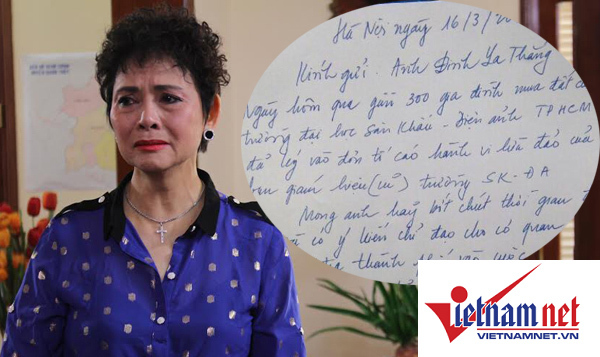 Hà Nội ngày 16/3/20
Kính gửi: Anh Đinh La Thăng
Ngày hôm qua gần 300 gia đình mua đất của
trường đại học Sân Khấu - Điện ảnh TPHCM
đã ký vào đơn tố cáo hành vi lừa đảo của
ban giám hiệu (cũ) trường SK-ĐA
Mong anh hãy bớt chút thời gian
và có ý kiến chỉ đạo cho cơ quan
thành phố vào cuộc
Vietnamnet
VIETNAMNET.VN